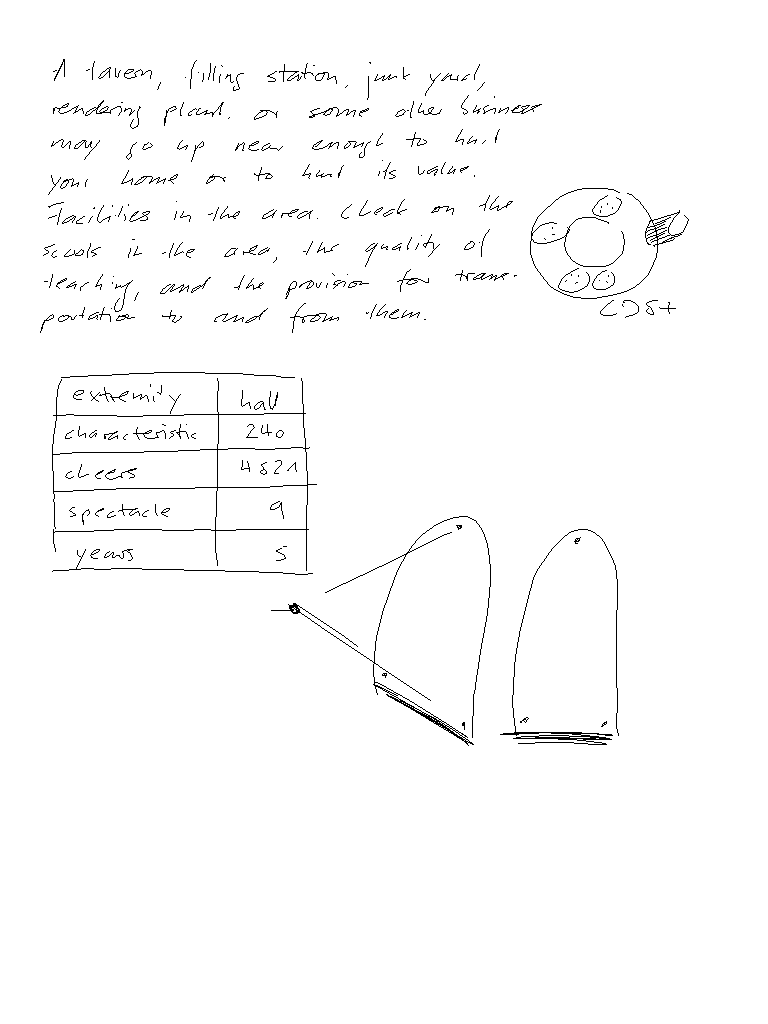 A tavern, filling station, junk yard,
rendering plant, or some other business
may go up near enough to hurt
your home or to hurt its value.
Facilities in the area. Check on the
scools in the area, the quality of
teaching, and the provision for trans-
portation to and from them.
extremity hall
characteristic 240
cheers 4821
spectacle 9
years 5